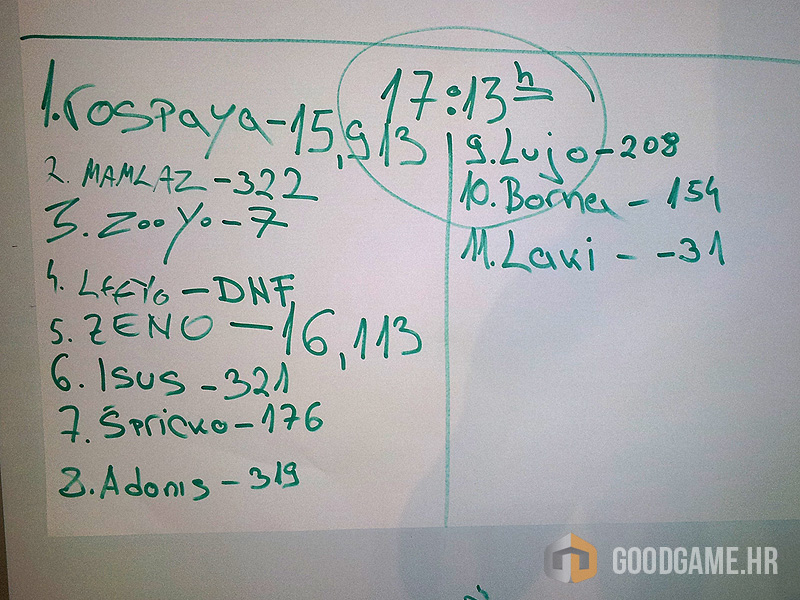 17:13h
1. rospaya - 15,913
2. MAMLAZ - 322
3. Zooyo - 7
4. Leeyo - DNF
5. ZENO - 16,113
6. Isus - 321
7. Špricko - 176
8. Adonis - 319
9. Lujo - 208
10. Borna - 154
11. Laki - -31
GOODGAME.HR